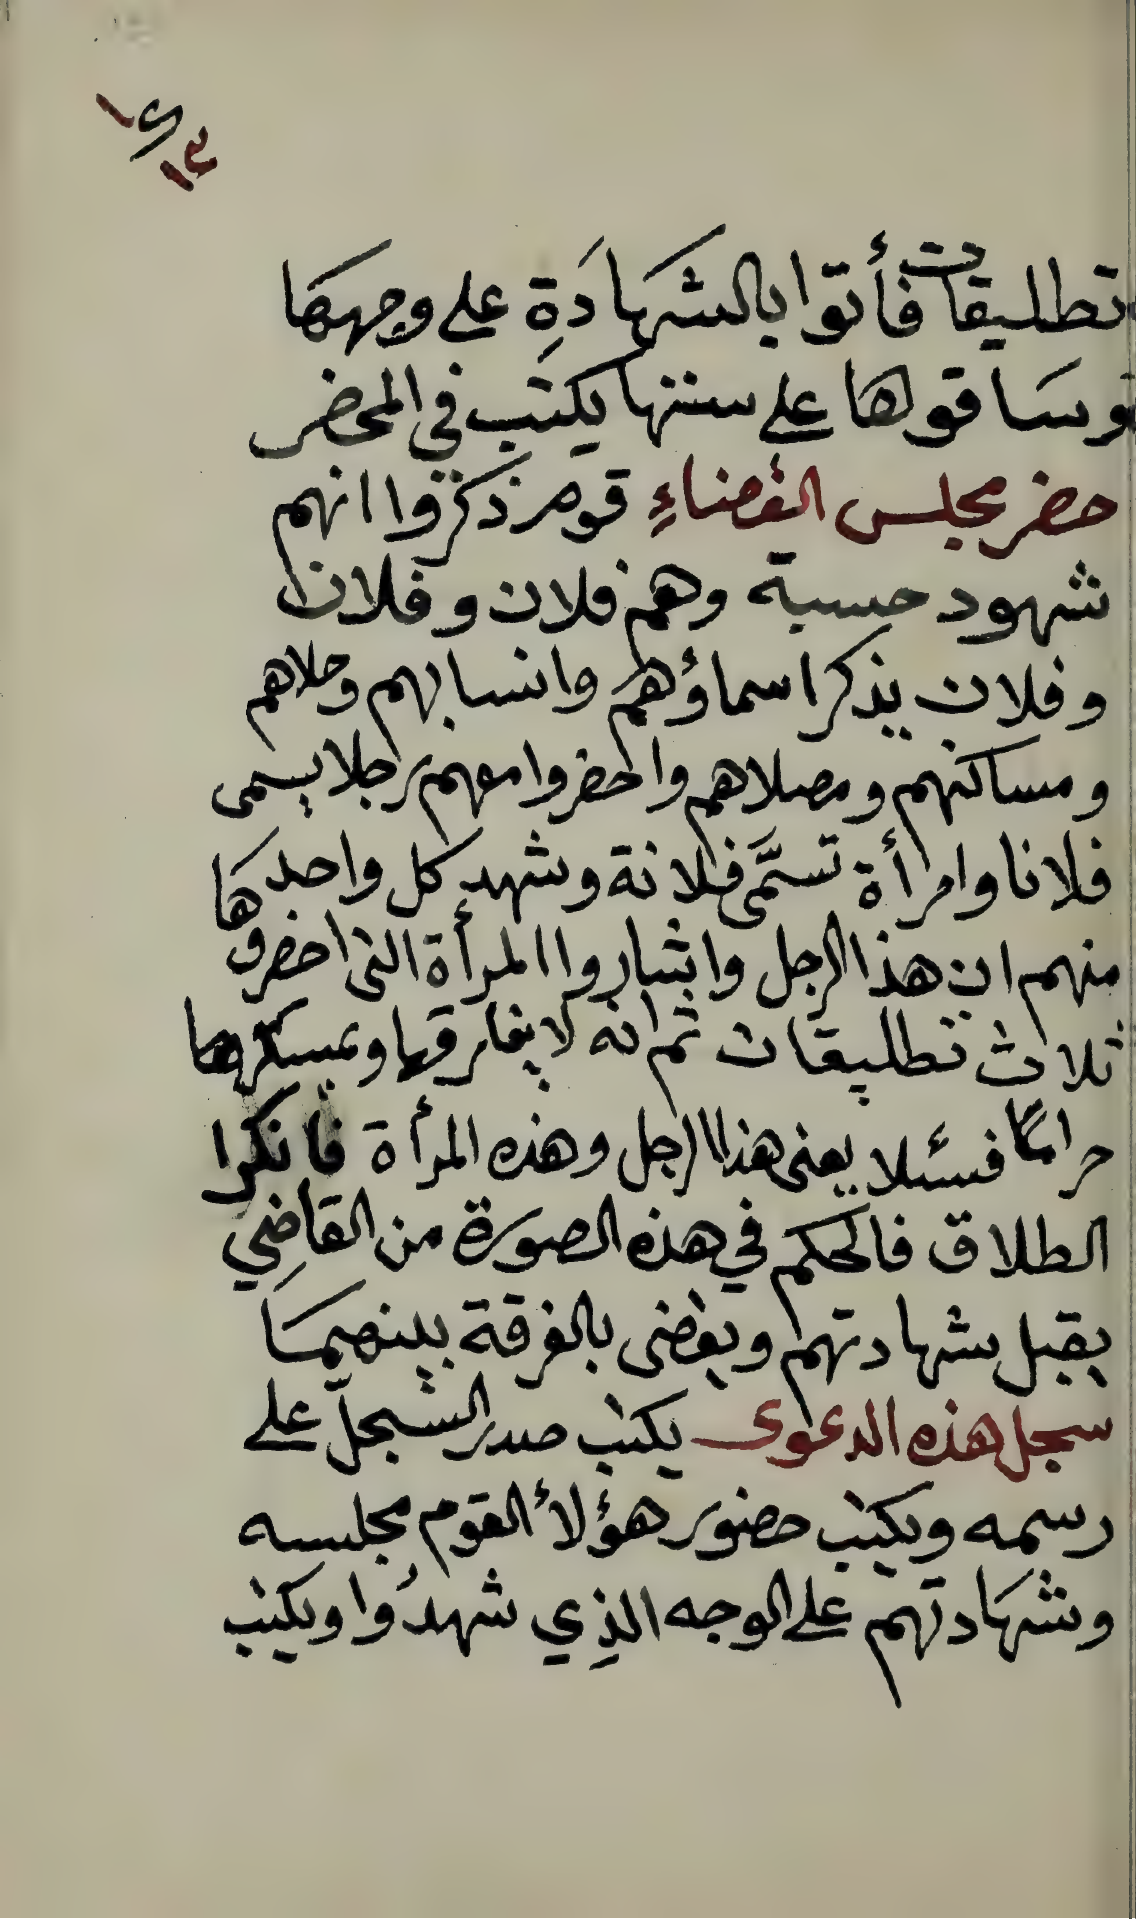 تطليقات فأتوا بالشهادَةِ على وجهها
وساقولها على سننها يكتب في المحضر
حضر مجلس القضاءِ قوم ذكروا انهم
شهود حسبة وهم فلان و فلان
و فلان يذكر اسماؤهم وانسابهم وحلاهم
ومساكنهم ومصلاهم واحضروا معهم رجلا يسمى
فلانا وامرأة تسمَّى فلانة وشهد كل واحد
منهم ان هذا الرجل واشاروا المرأة التى احضر
ثلاث تطليقات ثم انه لا يفارقها ويمسكها
حرامًا فسئلا يعنى هذا الرجل وهذه المرأة فانكرا
الطلاق فالحكم في هذه الصورة من القاضِي
يقبل شهادتهم ويقضى بالفرقة بينهمَا
سجل هذه الدعوى يكتب صدر السجلّ على
رسمه ويكتب حضور هؤلأ القوم مجلسه
وشهادتهم على الوجه الذِي شهدُوا ويكتب